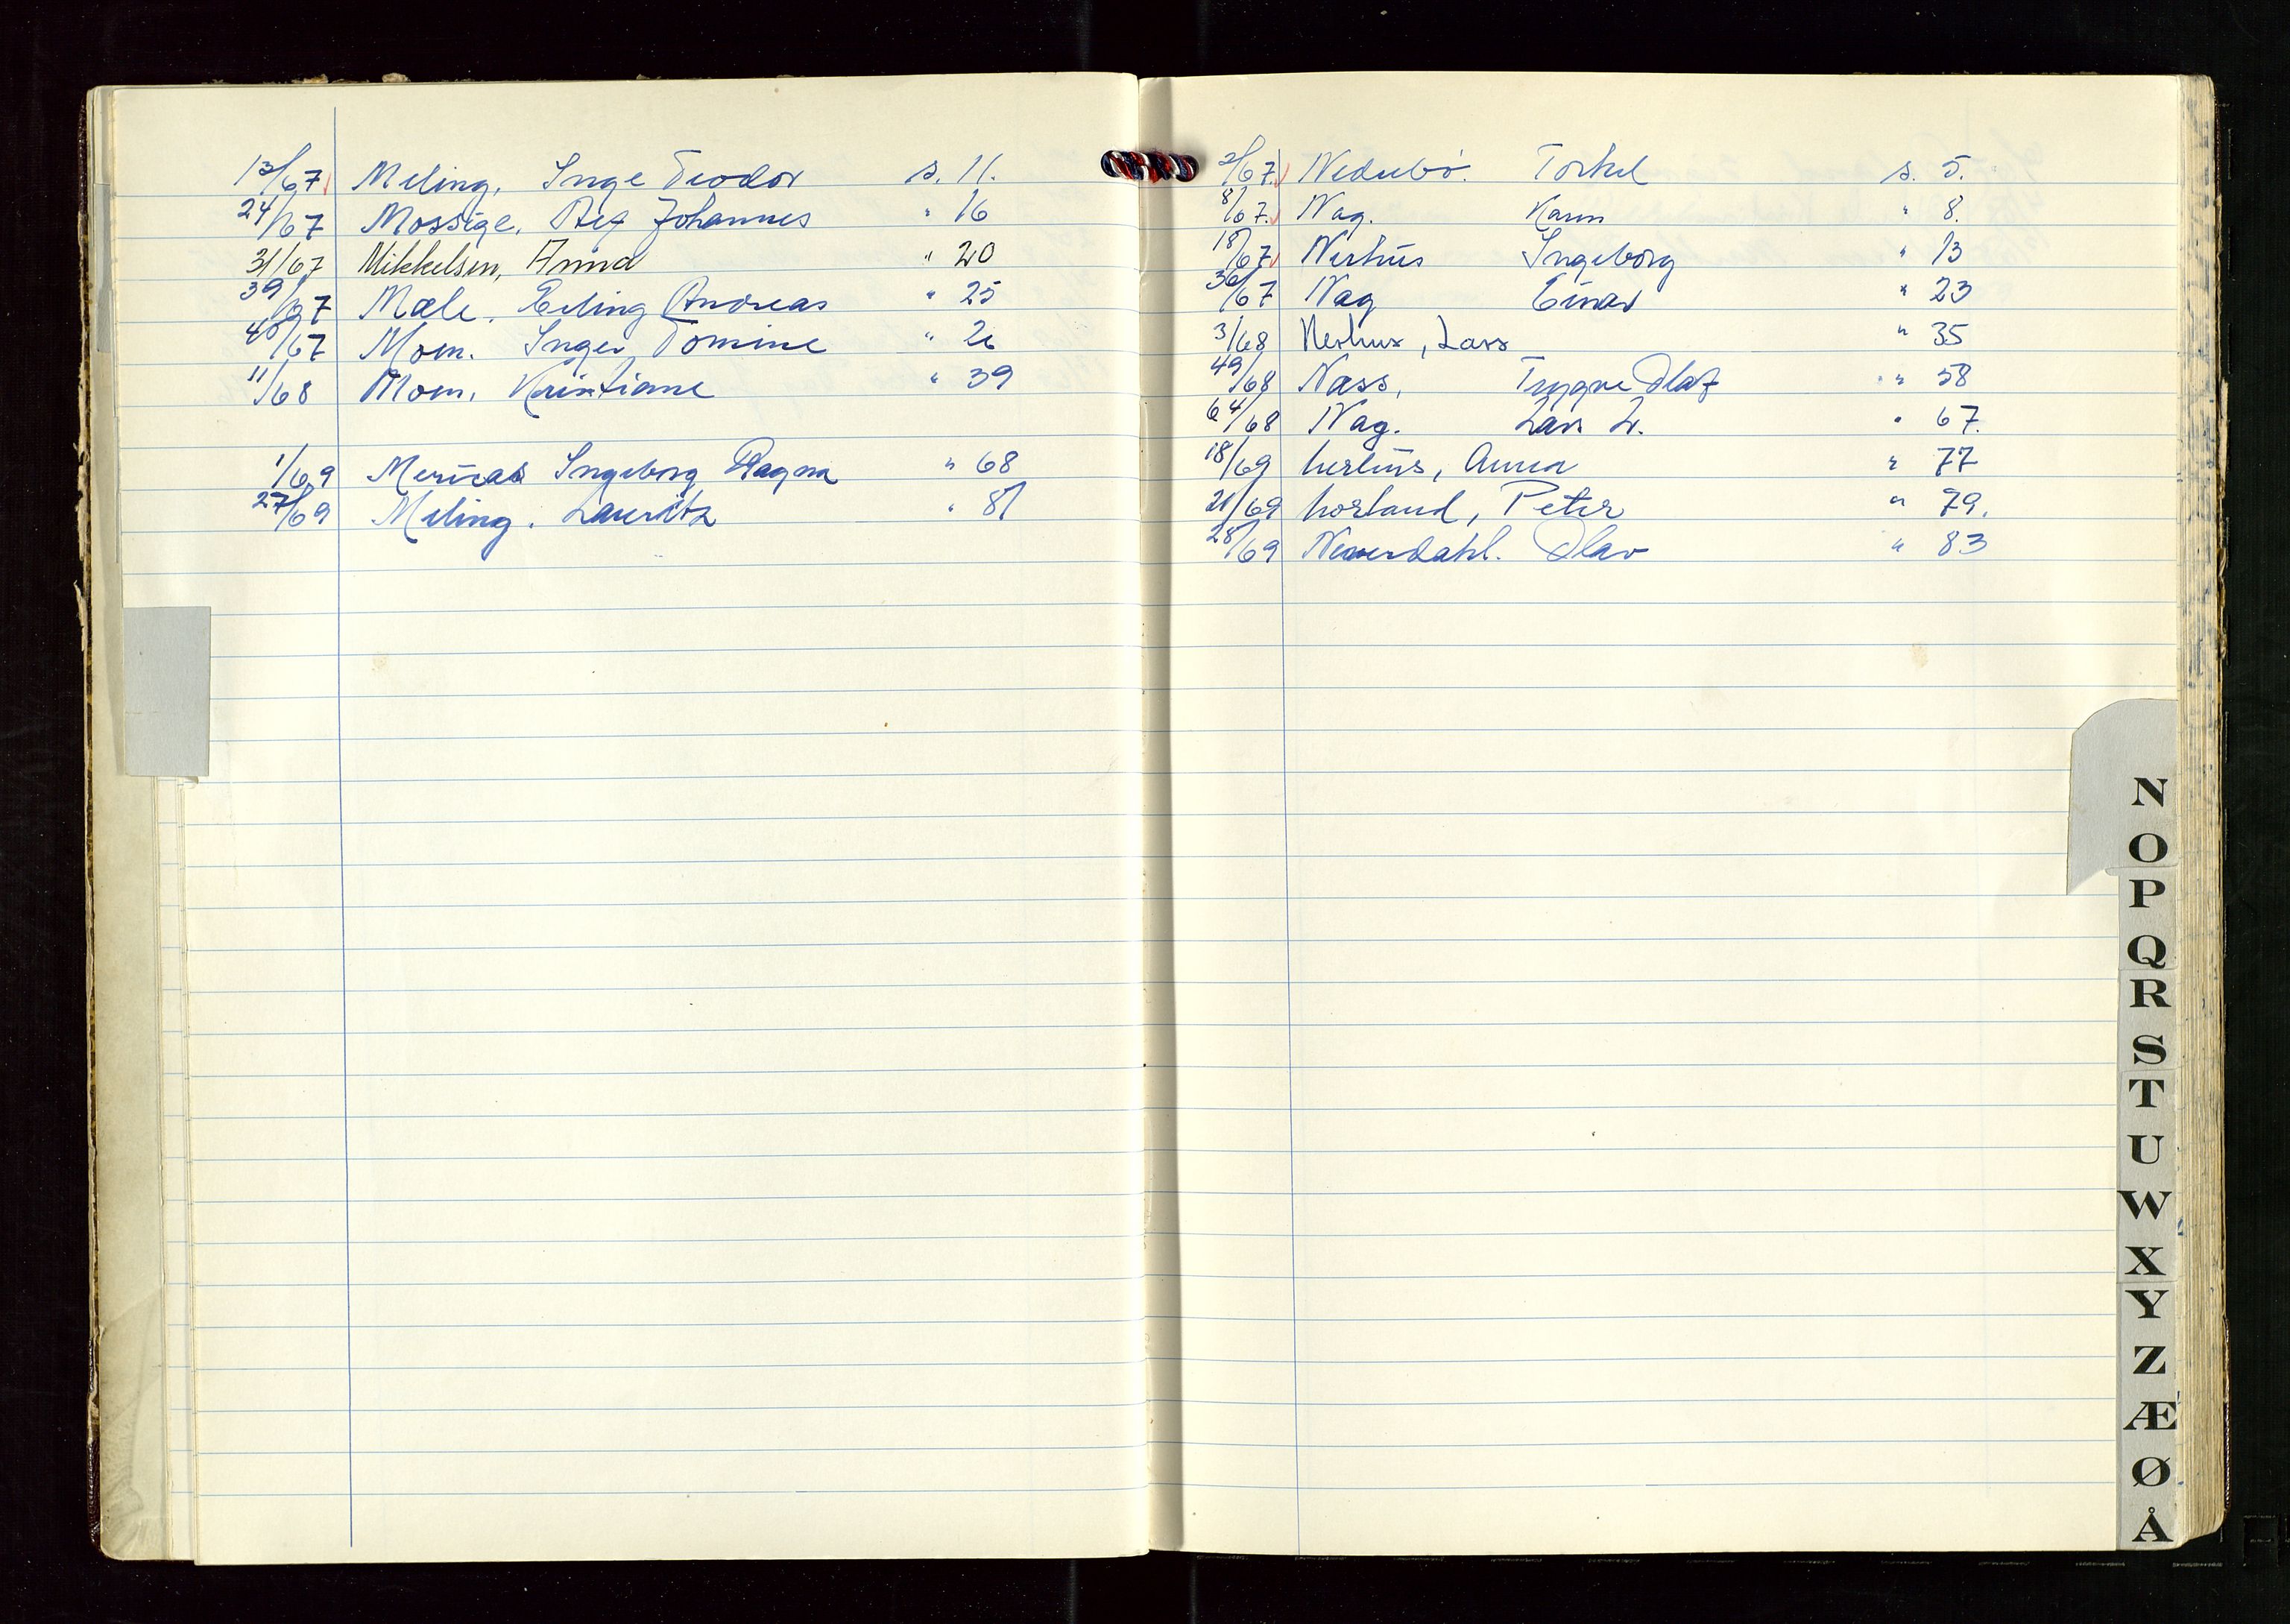 13/67 Meling, Inge Teodor s. 11.
24/67 Mossige, Leif Johannes " 16
31/67 Mikkelsen, Anna " 20
39/67 Mæle, Erling Andreas " 25
40/67 Moen. Inger Tomine " 26
11/68 Moen, Kristiane " 39
1/69 Ingeborg Ragna " 68
27/69 Meling. Lauritz " 81
2/67 Nedrebø. Torkel s. 5.
8/67. Nag. Karen " 8.
18/67 Nerhus Ingeborg " 13
36/67 Nag Einar " 23
3/68 Nerhus, Lars " 35
49/68 Næss, Trygve Olaf " 58
64/68 Nag. Lars L. " 67.
18/69 Nerhus, Anna " 77
21/69 Norland, Peter " 79.
28/69 Neverdahl. Olav " 83
N
O
P
Q
R
S
T
U
W
X
Y
Z
Æ
Ø
Å